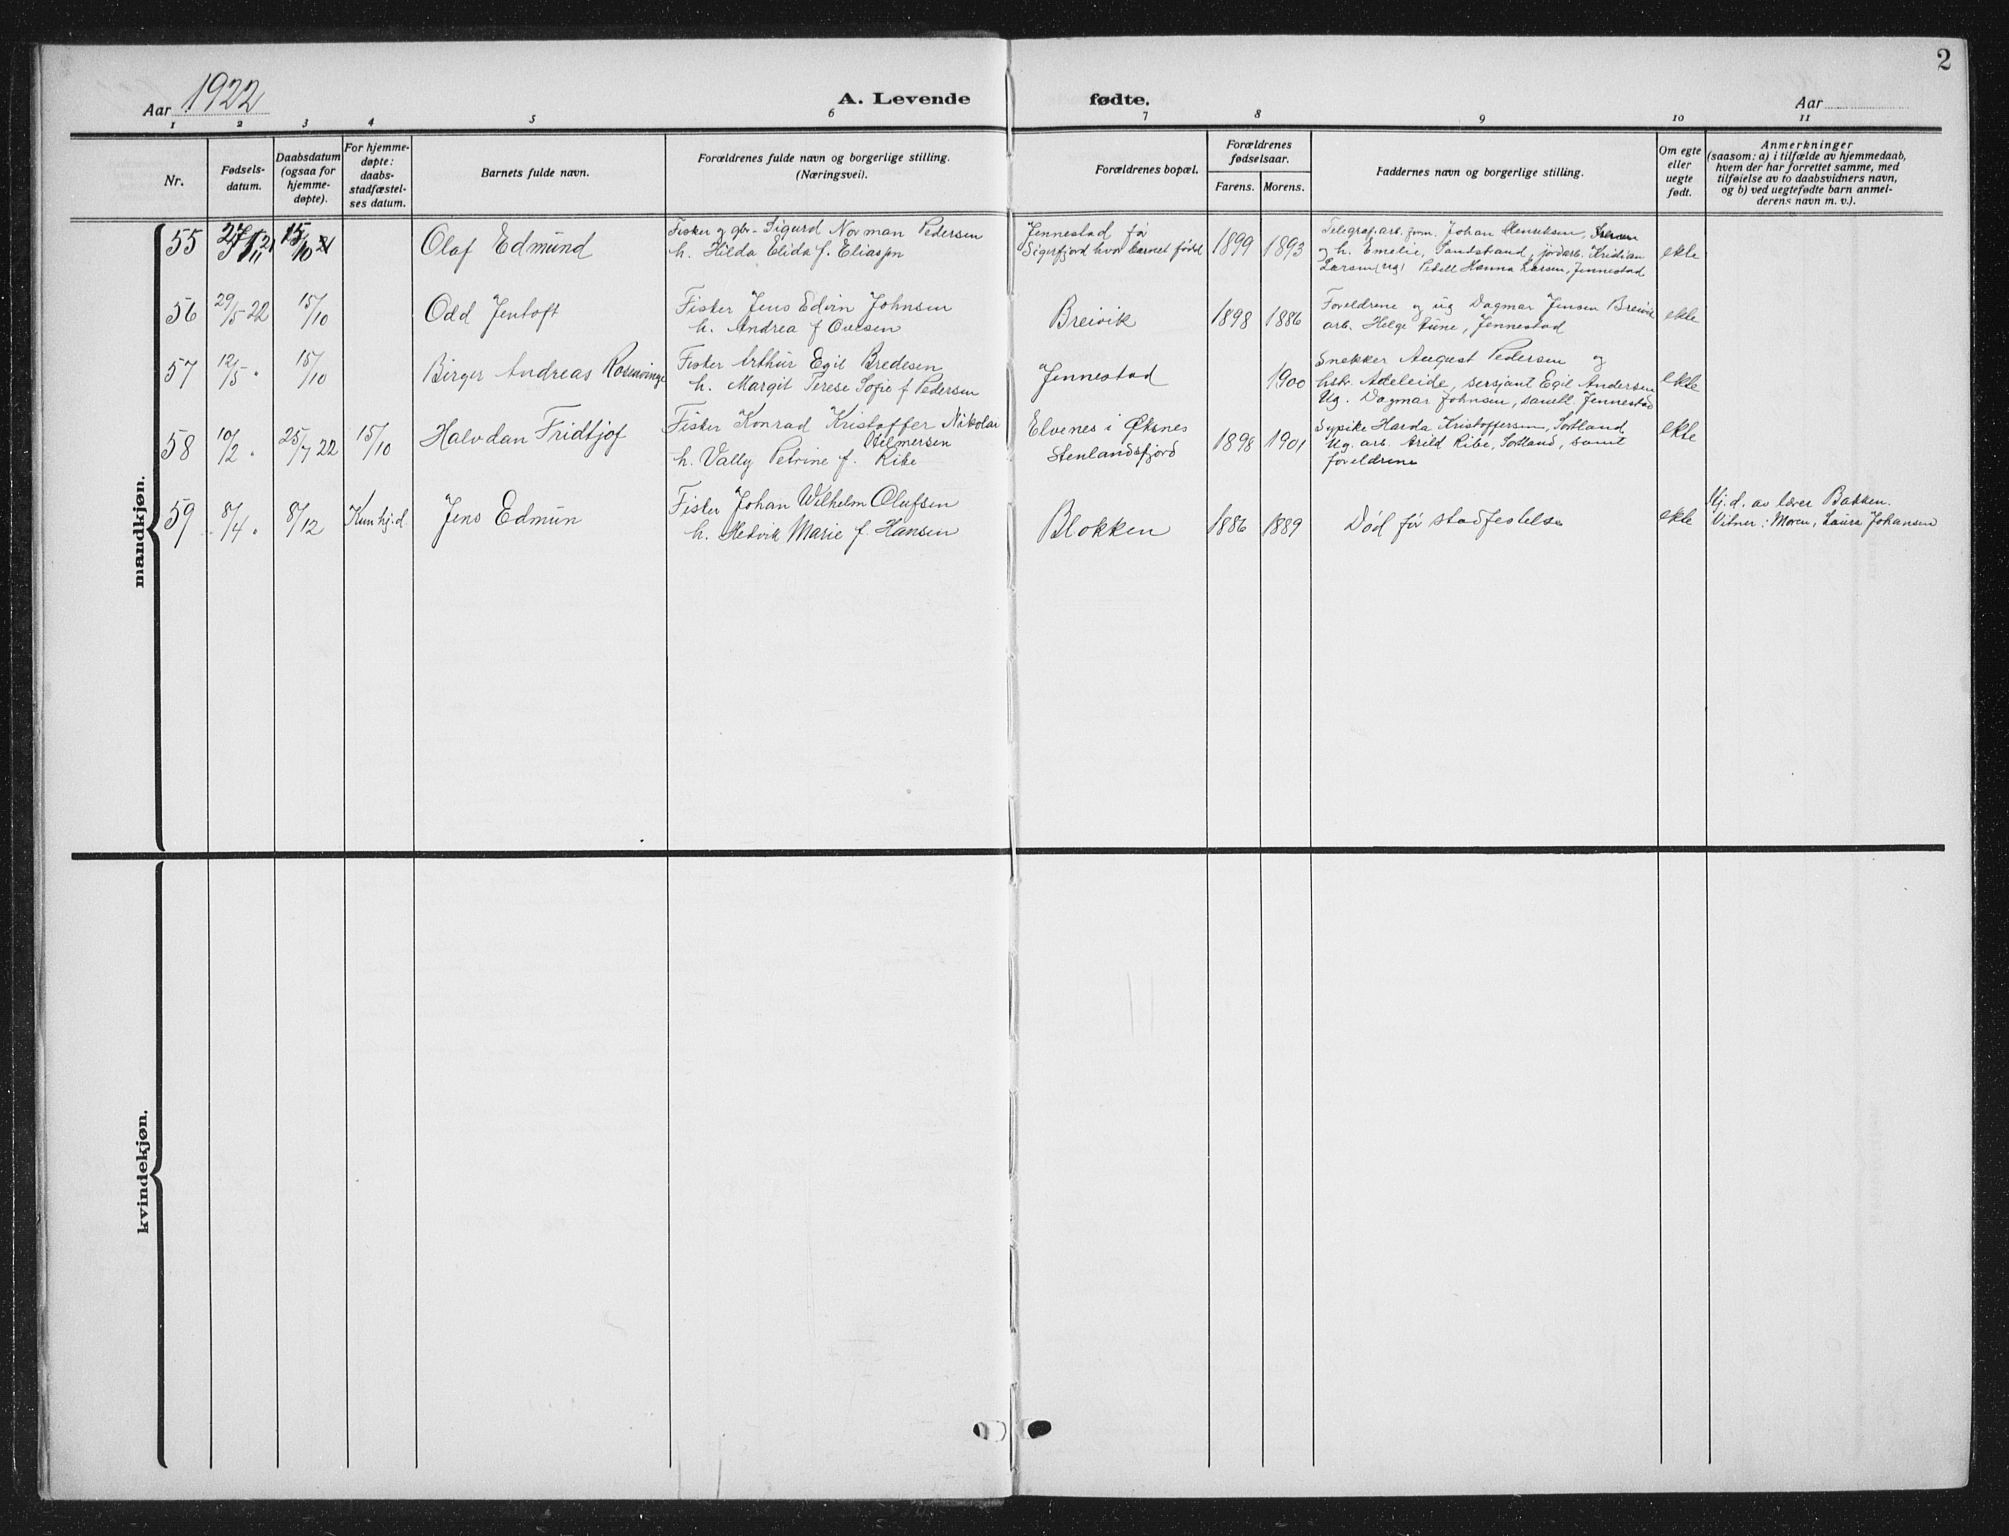 2
Aar 1922
A. Levende fødte.
Aar
1 2 3 4 5 6 7 8 9 10 11
Nr.
Fødsels-
datum.
Daabsdatum
(ogsaa for
hjemme-
døpte).
For hjemme-
døpte:
daabs-
stadfæstel-
ses datum.
Barnets fulde navn.
Forældrenes fulde navn og borgerlige stilling.
(Næringsvei).
Forældrenes bopæl.
Forældrenes
fødselsaar.
Farens. Morens.
Faddernes navn og borgerlige stilling.
Om egte
eller
uegte
født.
Anmerkninger
(saasom: a) i tilfælde av hjemmedaab,
hvem der har forrettet samme, med
tilføielse av to daabsvidners navn,
og b) ved uegtefødte barn anmel-
derens navn m. v.).
mandkjøn.
55 15/10 Olaf Edmund
Fisker og gbr. Sigurd Norman Pedersen
h. Hilda Elida f. Eliassen
Jennestad før
Sigerfjord hvor barnet født
1899 1893
Telegrafarb. form. Johan Henriksen,
og h. Emelie, Sandstrand, jordarb. Kristian
Larsen (ug) Hanna Larsen, Jennestad
ekte
56 29/5 22 15/10 Odd Jentoft
Fisker Jens Edvin Johnsen
h. Andrea f Ovesen
Breivik
1898 1886
Foreldrene og ug Dagmar Jensen Breivik
arb. Helge Aune, Jennestad
ekte
57 12/5 " 15/10 Birger Andreas Rosenvinge
Fisker Arthur Egil Bredesen
h. Margit Terese Sofie f Pedersen
Jennestad
1900
Snekker August Pedersen og
hstr. Adeleide, sersjant Egil Andersen
Ug. Dagmar Johnsen, samtl. Jennestad
ekte
58 10/2 " 25/7 22 15/10 Halvdan Fridtjof
Fisker Konrad Kristoffer Nikolai
Hilmersen
h. Vally Petrine f. Ribe
Elvenes i Øksnes
Stenlandsfjord
1898 1901
Sypike Harda Kristoffersen, Sortland
Ug. arb. Arild Ribe, Sortland, samt
foreldrene
ekte
59 8/4 " 8/12 Kun hj.d. Jens Edmun
Fisker Johan Wilhelm Olufsen
h. Hedvik Marie f. Hansen
Blokken
1886 1889
Død før stadfestelse
ekte
Hj.d. av lærer Bakken.
Vitner: Moren, Laura Johansen
kvindekjøn.